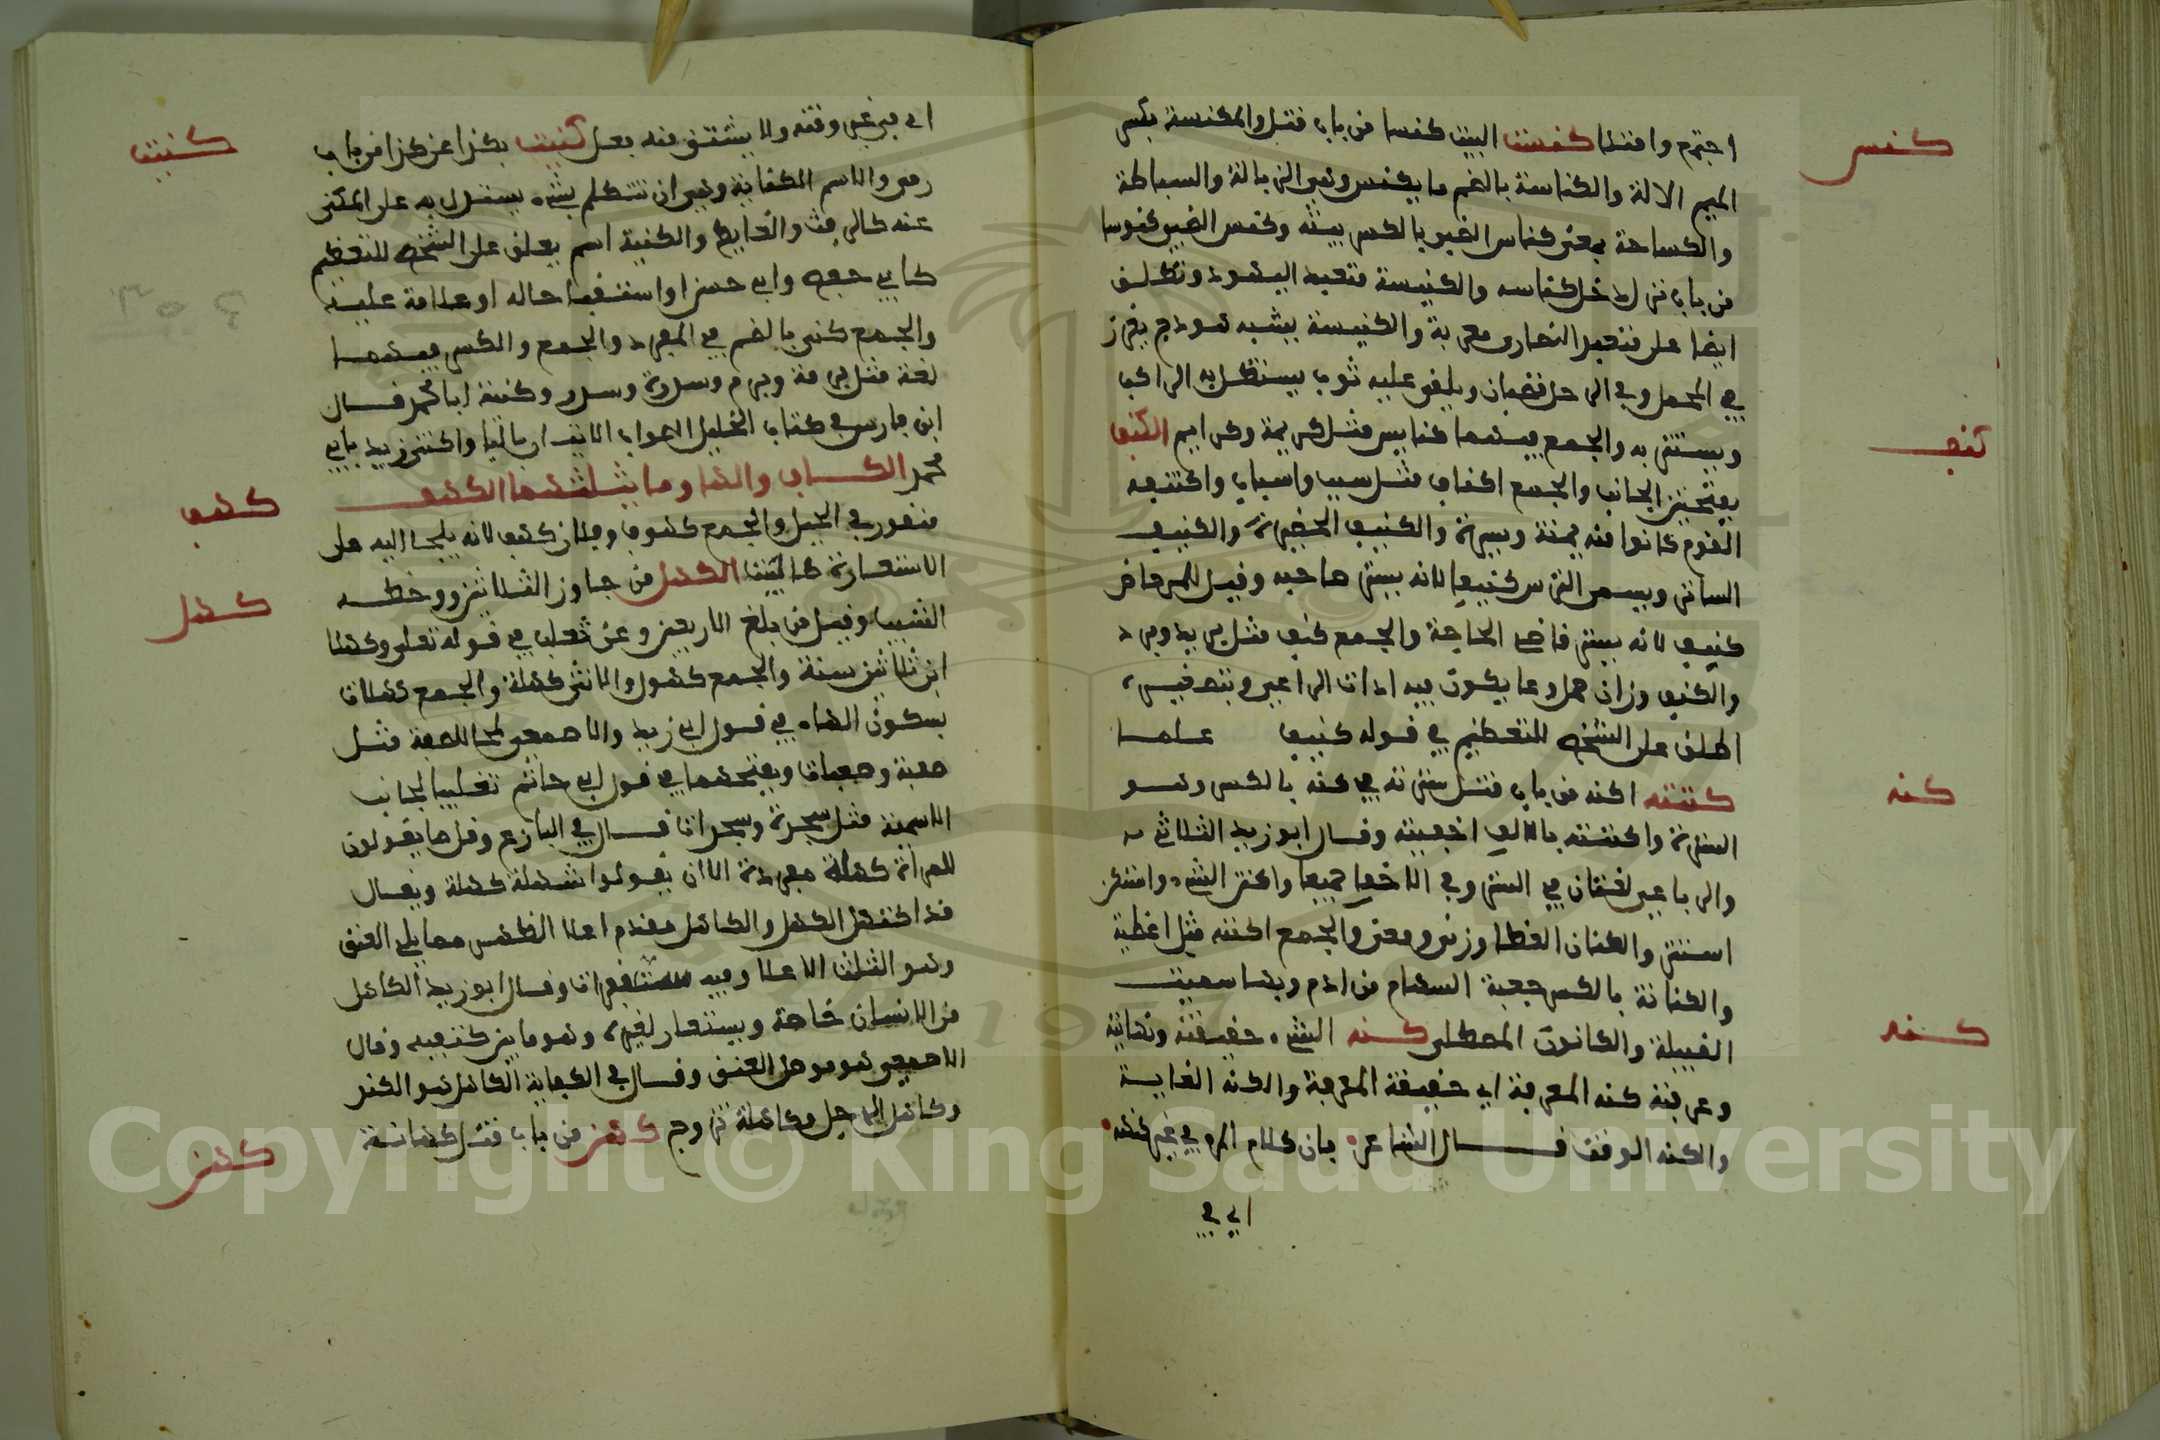 كنس
احترم وافتدا كنست البيت كنسا من باب قتل والمكنسة بكسر
الميم الالة والكناسة بالضم ما يكنس وهي الزبالة والسباطة
والكساحة بمعنى كناس الظبي بالكسر بيته وكنس الظبي كنوسا
من باب نزل دخل كناسه والكنيسة متعبد اليهود وتطلق
ايضا على متعبد النصارى معربة والكنيسة شبه هودج يغرز
في المحمل وفي الرحل قضبان ويلقى عليه ثوب يستظل به الراكب
ويستتر به والجمع فيهما كنايس مثل كريمة وكرايم الكنف
كنف
بفتحتين الجانب والجمع اكناف مثل سبب واسباب واكتنفه
القوم كانوا منه يمنة ويسرة والكنيف الحظيرة والكنيف
الساتر ويسمى الترس كنيفا لانه يستر صاحبه وقيل للمرحاض
كنيف لانه يستر قاضي الحاجة والجمع كنف مثل بريد وبرد
والكنف وزان حمل وعا يكون فيه اداة الراعي وبتصغيره
اطلق على الشخص للتعظيم في قوله كنيف علما
كننته اكنه من باب قتل سترته في كنه بالكسر وهو
كنه
السترة واكننته بالالف اخفيته وقال ابو زيد الثلاثي
والرباعي لغتان في الستر وفي الاخفا جميعا واكتن الشيء واستكن
استتر والكنان الغطا وزنا ومعنى والجمع اكنة مثل اغطية
والكنانة بالكسر جعبة السهام من ادم وبها سميت
القبيلة والكانون المصطلى كنه الشيء حقيقته ونهايته
كنه
وعرفته كنه المعرفة اي حقيقة المعرفة والكنه الغاية
والكنه الوقت قال الشاعر فان كلام المرء في غير كنهه
اي في
اي في غير وقته ولا يشتق منه فعل كنيت بكذا عن كذا من باب
كنيت
رمى والاسم الكناية وهي ان تتكلم بشيء يستدل به على المكنى
عنه كالرفث والغايط والكنية اسم يطلق على الشخص للتعظيم
كابي حفص وابي حسن او استفهما حاله او علامة عليه
والجمع كنى بالضم في المفرد والجمع والكسر فيهما
لغة مثل برمة وبرم وسدرة وسدر وكنيته ابا محمد قال
ابن فارس في كتاب الخليل الصواب الاتيان بالبا واكتنى زيد بابي
محمد الكاف والها وما يثلثهما الكهف
منقور في الجبل والجمع كهوف وفلان كهف لانه يلجا اليه على
كهف
الاستعارة كالبيت الكهل من جاوز الثلاثين ووخطه
كهل
الشيب وقيل من بلغ الاربعين وعن ثعلب في قوله تعلى وكهلا
ابن ثلاثين سنة والجمع كهول والانثى كهلة والجمع كهلات
بسكون الهاء في قول ابي زيد والاصمعي لمحا للصفة مثل
صعبة وصعبات وبفتحهما في قول ابي حاتم تغليبا لجانب
الاسمية مثل سجدة وسجدات قال في البارع وقل ما يقولون
للمراة كهلة مفردة الا ان يقولوا شهلة كهلة ويقال
قد اكتهل الكهل والكاهل مقدم اعلا الظهر مما يلي العنق
وهو الثلث الاعلا وفيه ست فقرات وقال ابو زيد الكاهل
من الانسان خاصة ويستعار لغيره وهو ما بين كتفيه وقال
الاصمعي هو موصل العنق وقال في الكفاية الكاهل هو الكتد
وكاهل الرجل وكاهلة تزوج كهن من باب قتل كهانة
كهن